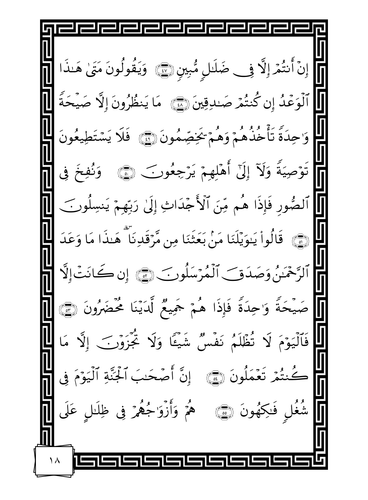 إِنْ أَنتُمْ إِلَّا فِى ضَلَـٰلٍ مُّبِينٍ ﴿٤٧﴾ وَيَقُولُونَ مَتَىٰ هَـٰذَا
ٱلْوَعْدُ إِن كُنتُمْ صَـٰدِقِينَ ﴿٤٨﴾ مَا يَنظُرُونَ إِلَّا صَيْحَةً
وَٰحِدَةً تَأْخُذُهُمْ وَهُمْ يَخِصِّمُونَ ﴿٤٩﴾ فَلَا يَسْتَطِيعُونَ
تَوْصِيَةً وَلَآ إِلَىٰٓ أَهْلِهِمْ يَرْجِعُونَ ﴿٥٠﴾ وَنُفِخَ فِى
ٱلصُّورِ فَإِذَا هُم مِّنَ ٱلْأَجْدَاثِ إِلَىٰ رَبِّهِمْ يَنسِلُونَ
﴿٥١﴾ قَالُوا۟ يَـٰوَيْلَنَا مَنۢ بَعَثَنَا مِن مَّرْقَدِنَا ۗ هَـٰذَا مَا وَعَدَ
ٱلرَّحْمَـٰنُ وَصَدَقَ ٱلْمُرْسَلُونَ ﴿٥٢﴾ إِن كَانَتْ إِلَّا
صَيْحَةً وَٰحِدَةً فَإِذَا هُمْ جَمِيعٌ لَّدَيْنَا مُحْضَرُونَ ﴿٥٣﴾
فَٱلْيَوْمَ لَا تُظْلَمُ نَفْسٌ شَيْـًٔا وَلَا تُجْزَوْنَ إِلَّا مَا
كُنتُمْ تَعْمَلُونَ ﴿٥٤﴾ إِنَّ أَصْحَـٰبَ ٱلْجَنَّةِ ٱلْيَوْمَ فِى
شُغُلٍ فَـٰكِهُونَ ﴿٥٥﴾ هُمْ وَأَزْوَٰجُهُمْ فِى ظِلَـٰلٍ عَلَى
١٨